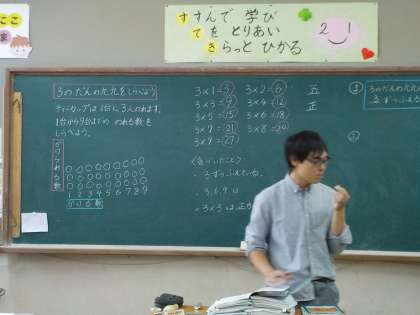 すすんで 学び
てを とりあい
きらっと ひかる
2 1
3のだんの九九をしらべよう。
ティーカップは1台に3人のれます。
1台から9台までの のれる数を
しらべよう。
1 2 3 4 5 6 7 8 9
3×1=3 3×2=6
3×3=9 3×4=12
3×5=15 3×6=18
3×7=21 3×8=24
3×9=27
五
正
<気づいたこと>
・3ずつふえている。
・3,6,9,
・3×3は、正
①
3のだんの九九
3ずつふえ
②